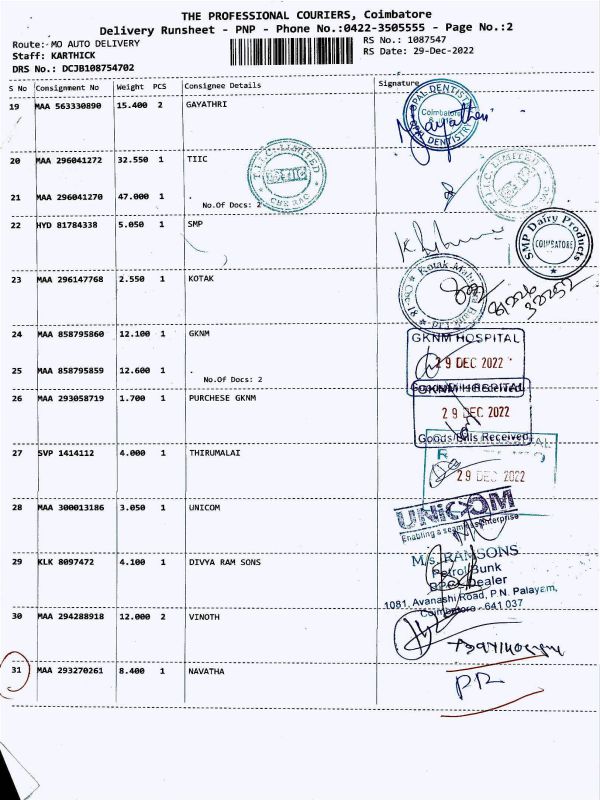 THE PROFESSIONAL COURIERS, Coimbatore
Delivery Runsheet - PNP - Phone No.:0422-3505555 - Page No.:2
Route: MO AUTO DELIVERY
RS No.: 1087547
Staff: KARTHICK
RS Date: 29-Dec-2022
DRS No.: DCJB108754702
S No Consignment No Weight PCS Consignee Details Signature
19 MAA 563330890 15.400 2 GAYATHRI
OPAL DENTISTRY
Coimbatore
OPAL DENTISTRY
20 MAA 296041272 32.550 1 TIIC
T.I.I.C. LIMITED
T.I.I.C. LIMITED
21 MAA 296041270 47.000 1 .
No.Of Docs: 2
22 HYD 81784338 5.050 1 SMP
SMP Dairy Products
COIMBATORE
23 MAA 296147768 2.550 1 KOTAK
24 MAA 858795860 12.100 1 GKNM
GKNM HOSPITAL
29 DEC 2022
25 MAA 858795859 12.600 1 .
No.Of Docs: 2
26 MAA 293058719 1.700 1 PURCHESE GKNM
GKNM HOSPITAL
29 DEC 2022
Goods/Bills Received
27 SVP 1414112 4.000 1 THIRUMALAI
29 DEC 2022
28 MAA 300013186 3.050 1 UNICOM
UNICOM
Enabling a seamless enterprise
29 KLK 8097472 4.100 1 DIVYA RAM SONS
M/s. RAMSONS
Petrol Bunk
Dealer
1081, Avanashi Road, P.N. Palayam,
Coimbatore - 641 037
30 MAA 294288918 12.000 2 VINOTH
31 MAA 293270261 8.400 1 NAVATHA